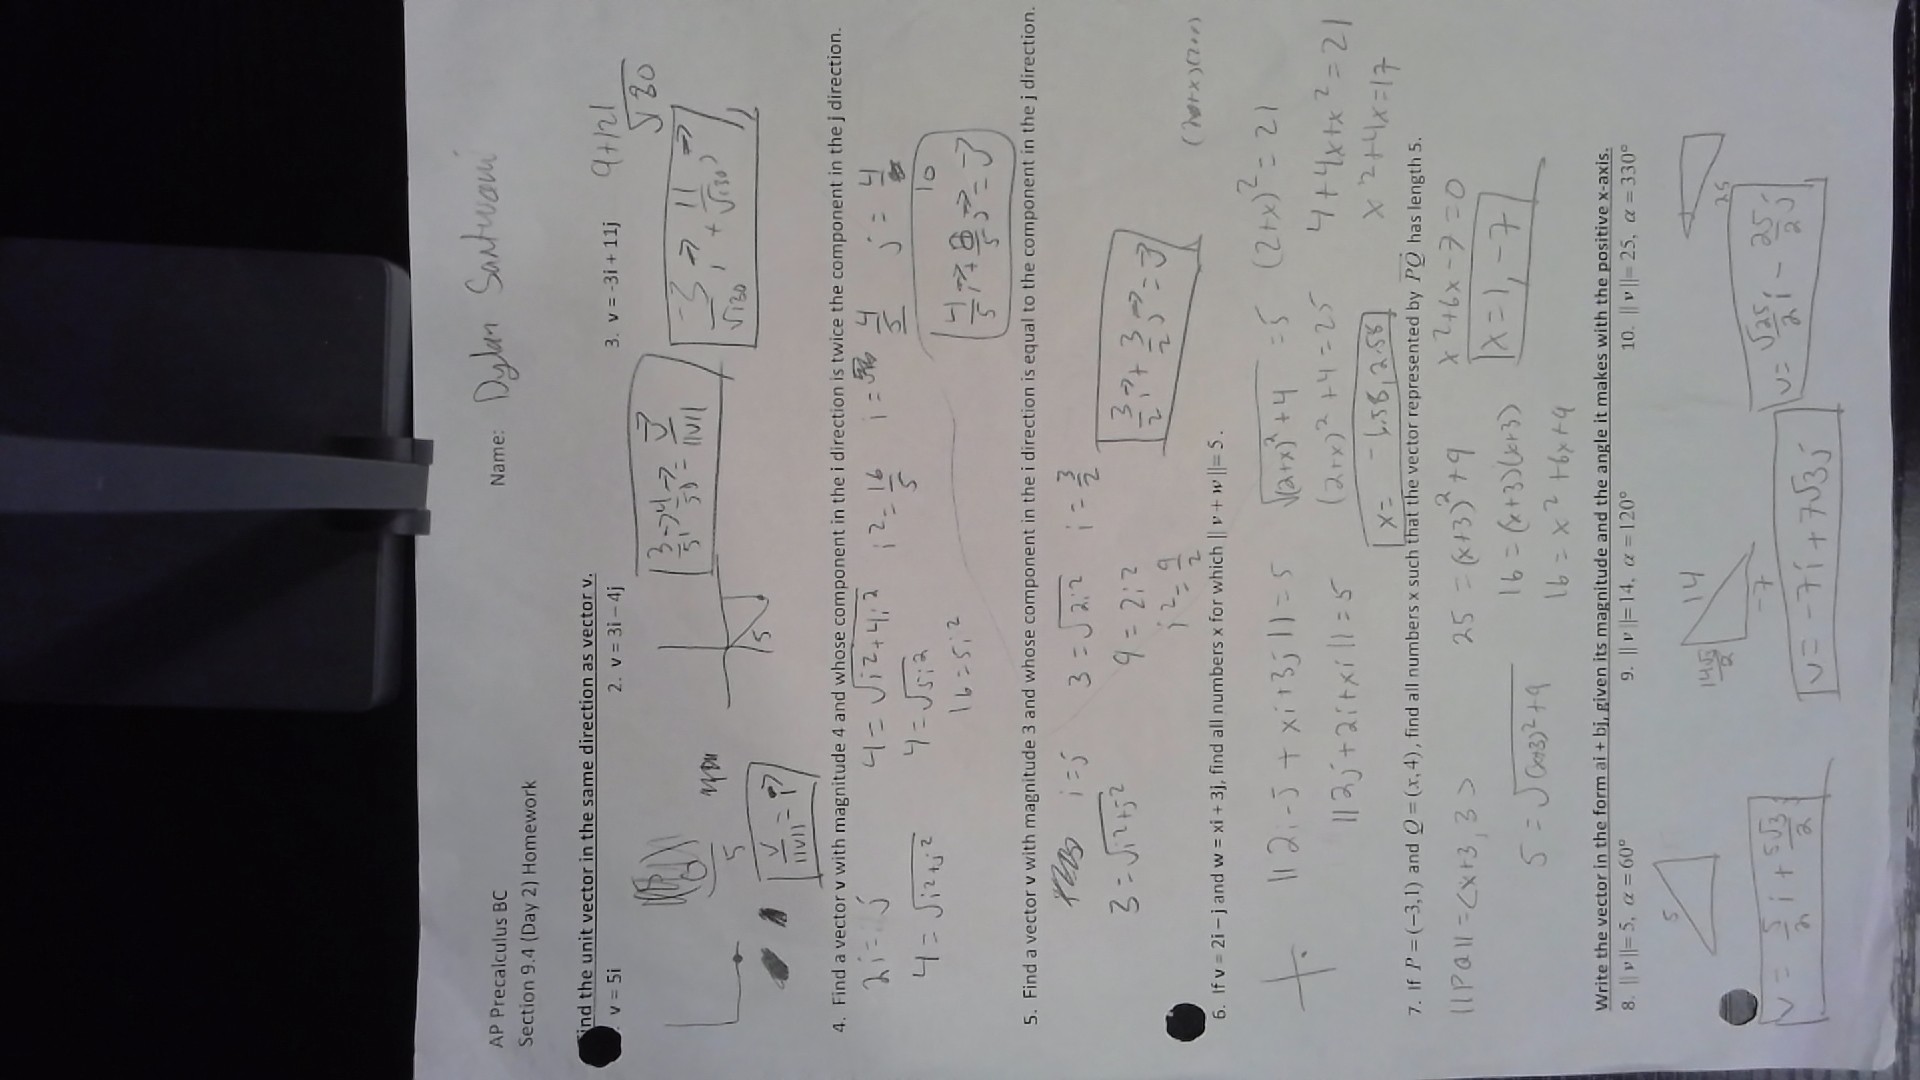 AP Precalculus BC
Section 9.4 (Day 2) Homework
Name: Dylan Santwani
ind the unit vector in the same direction as vector v.
. v = 5i
2. v = 3i – 4j
3. v = -3i + 11j
9+121
√130
5
v/||v|| = i→
5
3/5 i→ - 4/5 j→ = v→/||v||
-3/√130 i→ + 11/√130 j→
4. Find a vector v with magnitude 4 and whose component in the i direction is twice the component in the j direction.
2i = j
4 = √i²+j²
4 = √i²+4i²
4 = √5i²
16 = 5i²
i² = 16/5
i =
4/5
j = 4
10
= v→
5. Find a vector v with magnitude 3 and whose component in the i direction is equal to the component in the j direction.
i = j
3 = √i²+j²
3 = √2i²
9 = 2i²
i² = 9/2
i = 3/2
3/2 i→ + 3/2 j→ = v→
6. If v = 2i – j and w = xi + 3j, find all numbers x for which || v + w || = 5.
||2i-j + xi+3j|| = 5
||2j+2i+xi|| = 5
√(2+x)²+4 = 5
(2+x)²+4 = 25
(2+x)² = 21
4+4x+x² = 21
x²+4x=17
x= -6.58, 2.58
7. If P = (−3,1) and Q = (x,4), find all numbers x such that the vector represented by PQ has length 5.
||PQ|| = <x+3, 3>
5 = √(x+3)²+9
25 = (x+3)²+9
16 = (x+3)(x+3)
16 = x²+6x+9
x²+6x-7=0
x=1, -7
Write the vector in the form ai + bj, given its magnitude and the angle it makes with the positive x-axis.
8. || v || = 5, α = 60°
9. || v || = 14, α = 120°
10. || v || = 25, α = 330°
5
14
14√3/2
-7
25
v = 5/2 i + 5√3/2 j
v = -7i + 7√3j
v = √25/2 i - 25/2 j